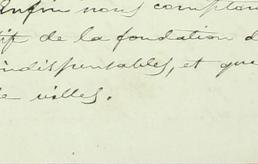 Enfin nous compton
tif de la fondation d
indispensables, et que
e villes.